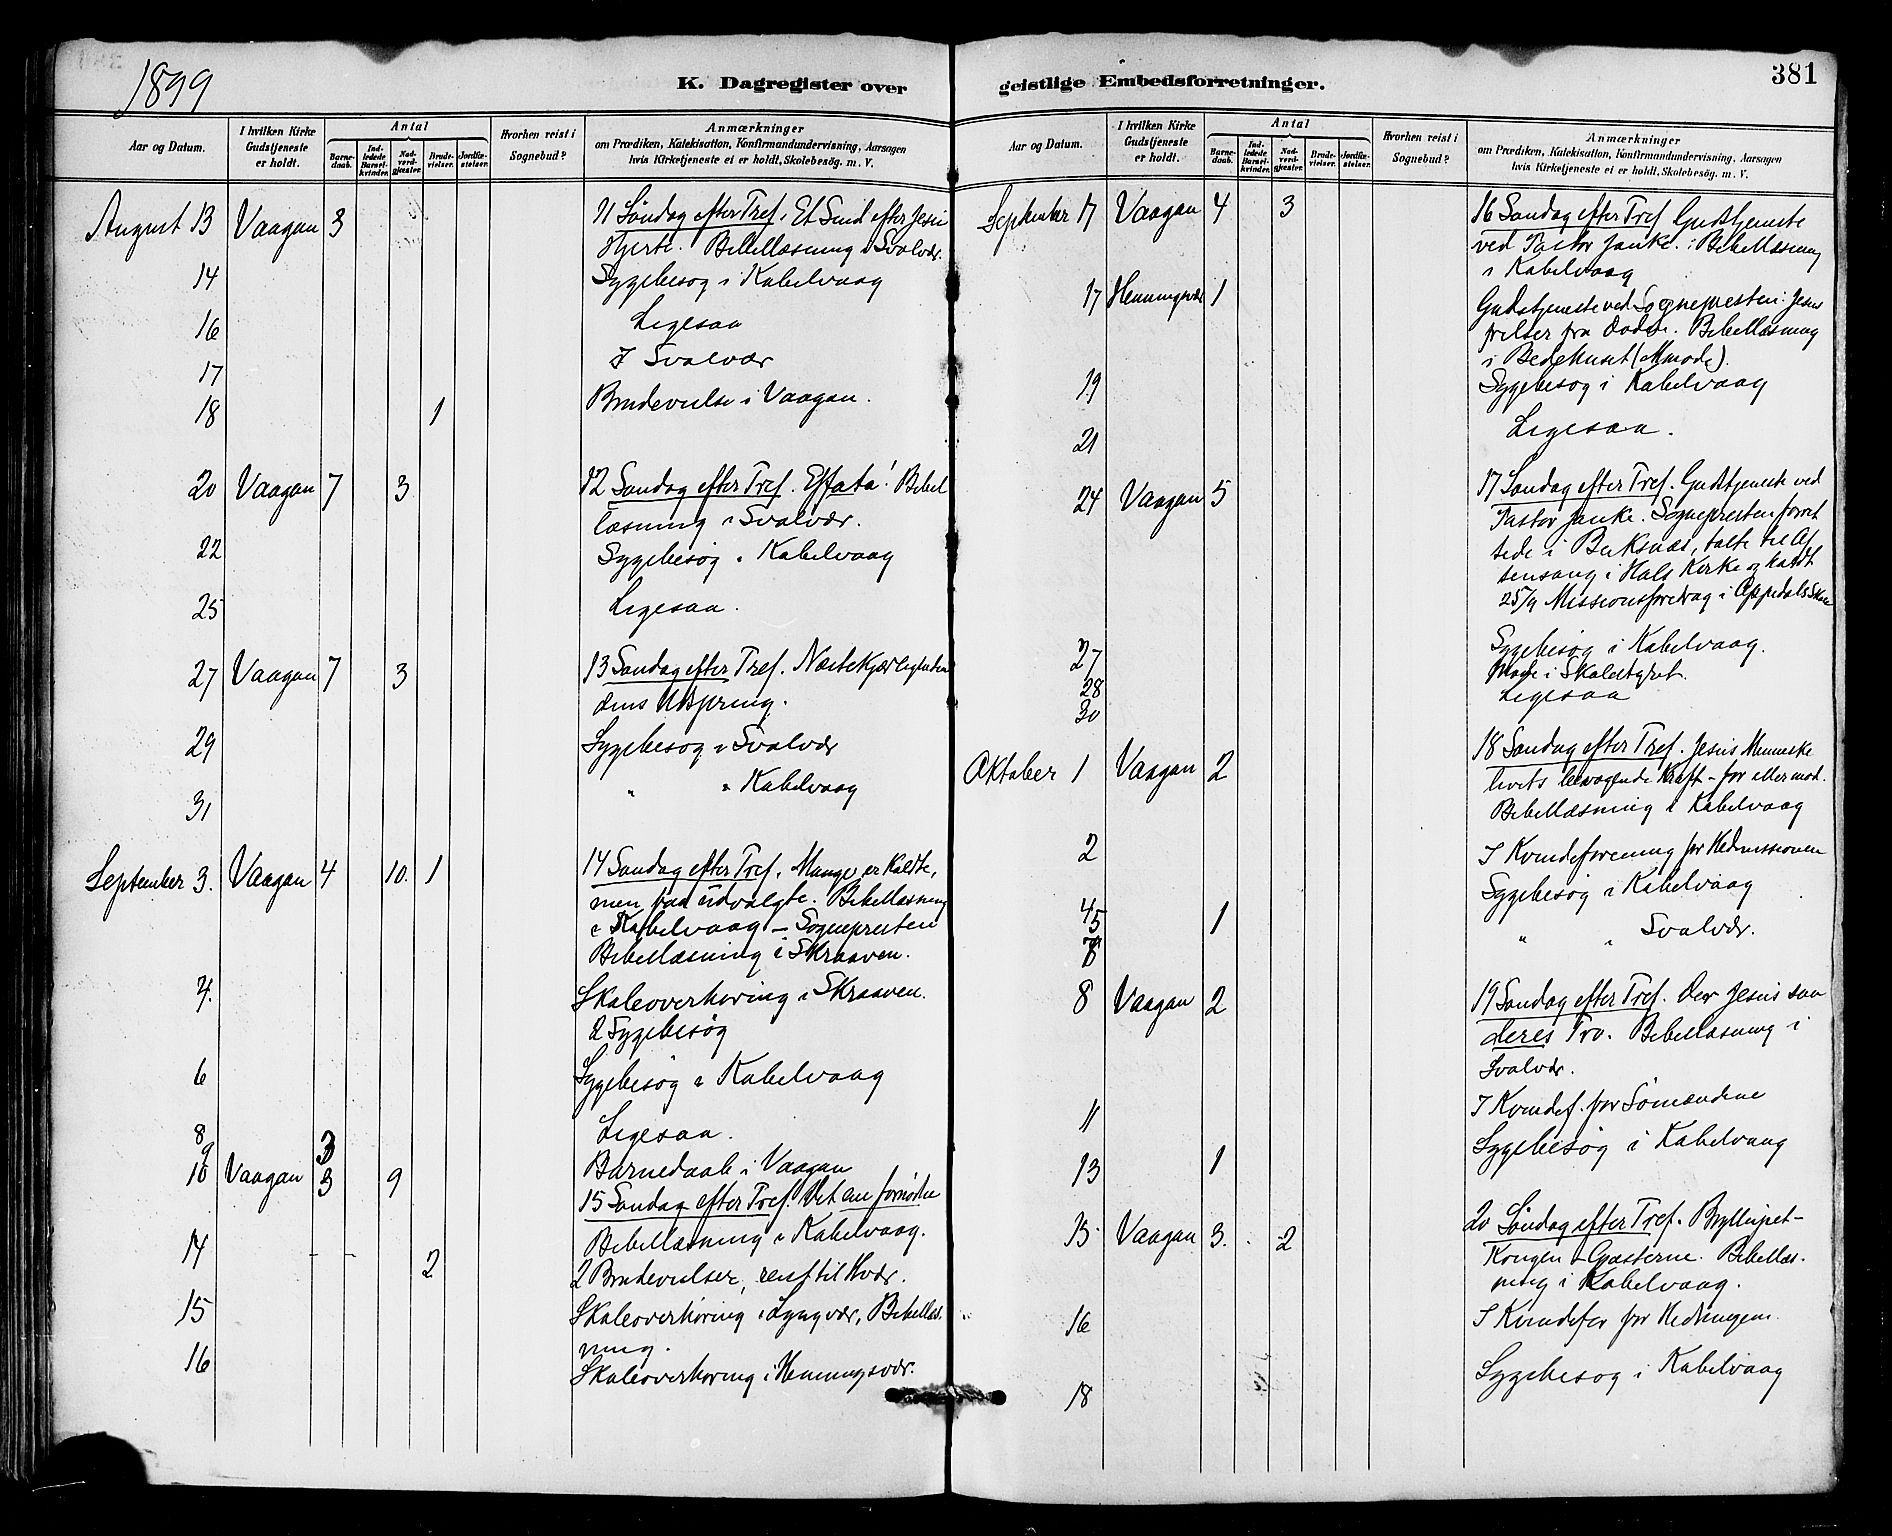 1899
K. Dagregister over
Aar og Datum.
I hvilken Kirke Gudstjeneste er holdt.
Antal
Barne-daab.
Ind-ledede Barsel-kvinder.
Nad-verd-gjester.
Brude-vielser.
Jordfæ-stelser.
Hvorhen reist i Sognebud?
Anmærkninger
om Prædiken, Katekisation, Konfirmandundervisning, Aarsagen
hvis Kirketjeneste ei er holdt, Skolebesøg. m. V.
August 13 Vaagan 3 11 Søndag efter Tref. Et Sind efter Jesu
Hjerte. Bibellæsning i Svolvær.
14 Sygebesøg i Kabelvaag
16 Ligesaa
17 I Svolvær
18 1 Brudevielse i Vaagan.
20 Vaagan 7 3 12 Søndag efter Tref. Effata! Bibel
læsning i Svolvær.
22 Sygebesøg i Kabelvaag
25 Ligesaa.
27 Vaagan 7 3 13 Søndag efter Tref. Næstekjærlighe
dens Udspring.
29 Sygebesøg i Svolvær
31 " " Kabelvaag
September 3. Vaagan 4 10. 1 14 Søndag efter Tref. Mange er kaldte,
men faa udvalgte. Bibellæsning
i Kabelvaag – Sognepresten
Bibellæsning i Skraaven.
4. Skoleoverhøring i Skraaven.
2 Sygebesøg
6 Sygebesøg i Kabelvaag
8 Ligesaa.
9 3 Barnedaab i Vaagan
10 Vaagan 3 9 15 Søndag efter Tref. Det ene fornødne
Bibellæsning i Kabelvaag.
14 2 2 Brudevielser, reist til Hvær.
15 Skoleoverhøring i Lyngvær, Bibellæs.
ning.
16 Skoleoverhøring i Henningsvær.
geistlige Embedsforretninger.
381
Aar og Datum.
I hvilken Kirke Gudstjeneste er holdt.
Antal
Barne-daab.
Ind-ledede Barsel-kvinder.
Nad-verd-gjester.
Brude-vielser.
Jordfæ-stelser.
Hvorhen reist i Sognebud?
Anmærkninger
om Prædiken, Katekisation, Konfirmandundervisning, Aarsagen
hvis Kirketjeneste ei er holdt, Skolebesøg. m. V.
September 17 Vaagan 4 3 16 Søndag efter Tref. Gudstjeneste
ved Pastor Janke. Bibellæsning
i Kabelvaag
17 Henningsvær 1 Gudstjeneste ved Sognepresten: Jesus
frelser fra Døden. Bibellæsning
i Bedehuset (Mmøde).
19 Sygebesøg i Kabelvaag
21 Ligesaa.
24 Vaagan 5 17 Søndag efter Tref. Gudstjeneste ved
Pastor Janke. Sognepresten forret
tede i Buksnæs, talte til Af
tensang i Hols Kirke og holdt
25/9 Missionsforedrag i Oppdøls Skole
27 Sygebesøg i Kabelvaag.
28 Møde i Skolestyret.
30 Ligesaa
Oktober 1 Vaagan 2 18 Søndag efter Tref. Jesus Menneske
livets bevægende Kraft – for eller mod.
Bibellæsning i Kabelvaag
2 I Kvindeforening for Hedmissionen
4 Sygebesøg i Kabelvaag
5 1
7 " " Svolvær.
8 Vaagan 2 19 Søndag efter Tref. Der Jesus saa
deres Tro. Bibellæsning i
Svolvær.
11 I Kvindef. for Sømændene
13 1 Sygebesøg i Kabelvaag
15 Vaagan 3. 2 20 Søndag efter Tref. Bryllupet –
Kongen – Gjæsterne. Bibellæs.
ning i Kabelvaag.
16 I Kvindefor for Hedningem.
18 Sygebesøg i Kabelvaag